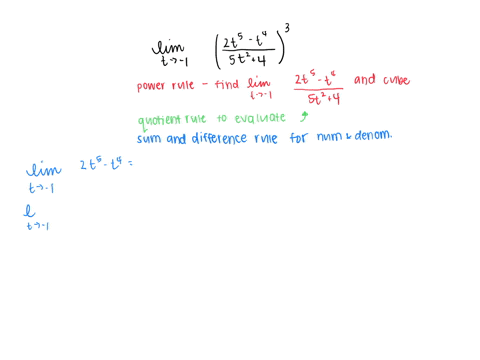 lim t→-1 (2t⁵ - t⁴ / 5t² + 4)³
power rule - find lim t→-1 2t⁵ - t⁴ / 5t² + 4 and cube
quotient rule to evaluate ↗
sum and difference rule for num & denom.
lim t→-1 2t⁵ - t⁴ =
l t→-1